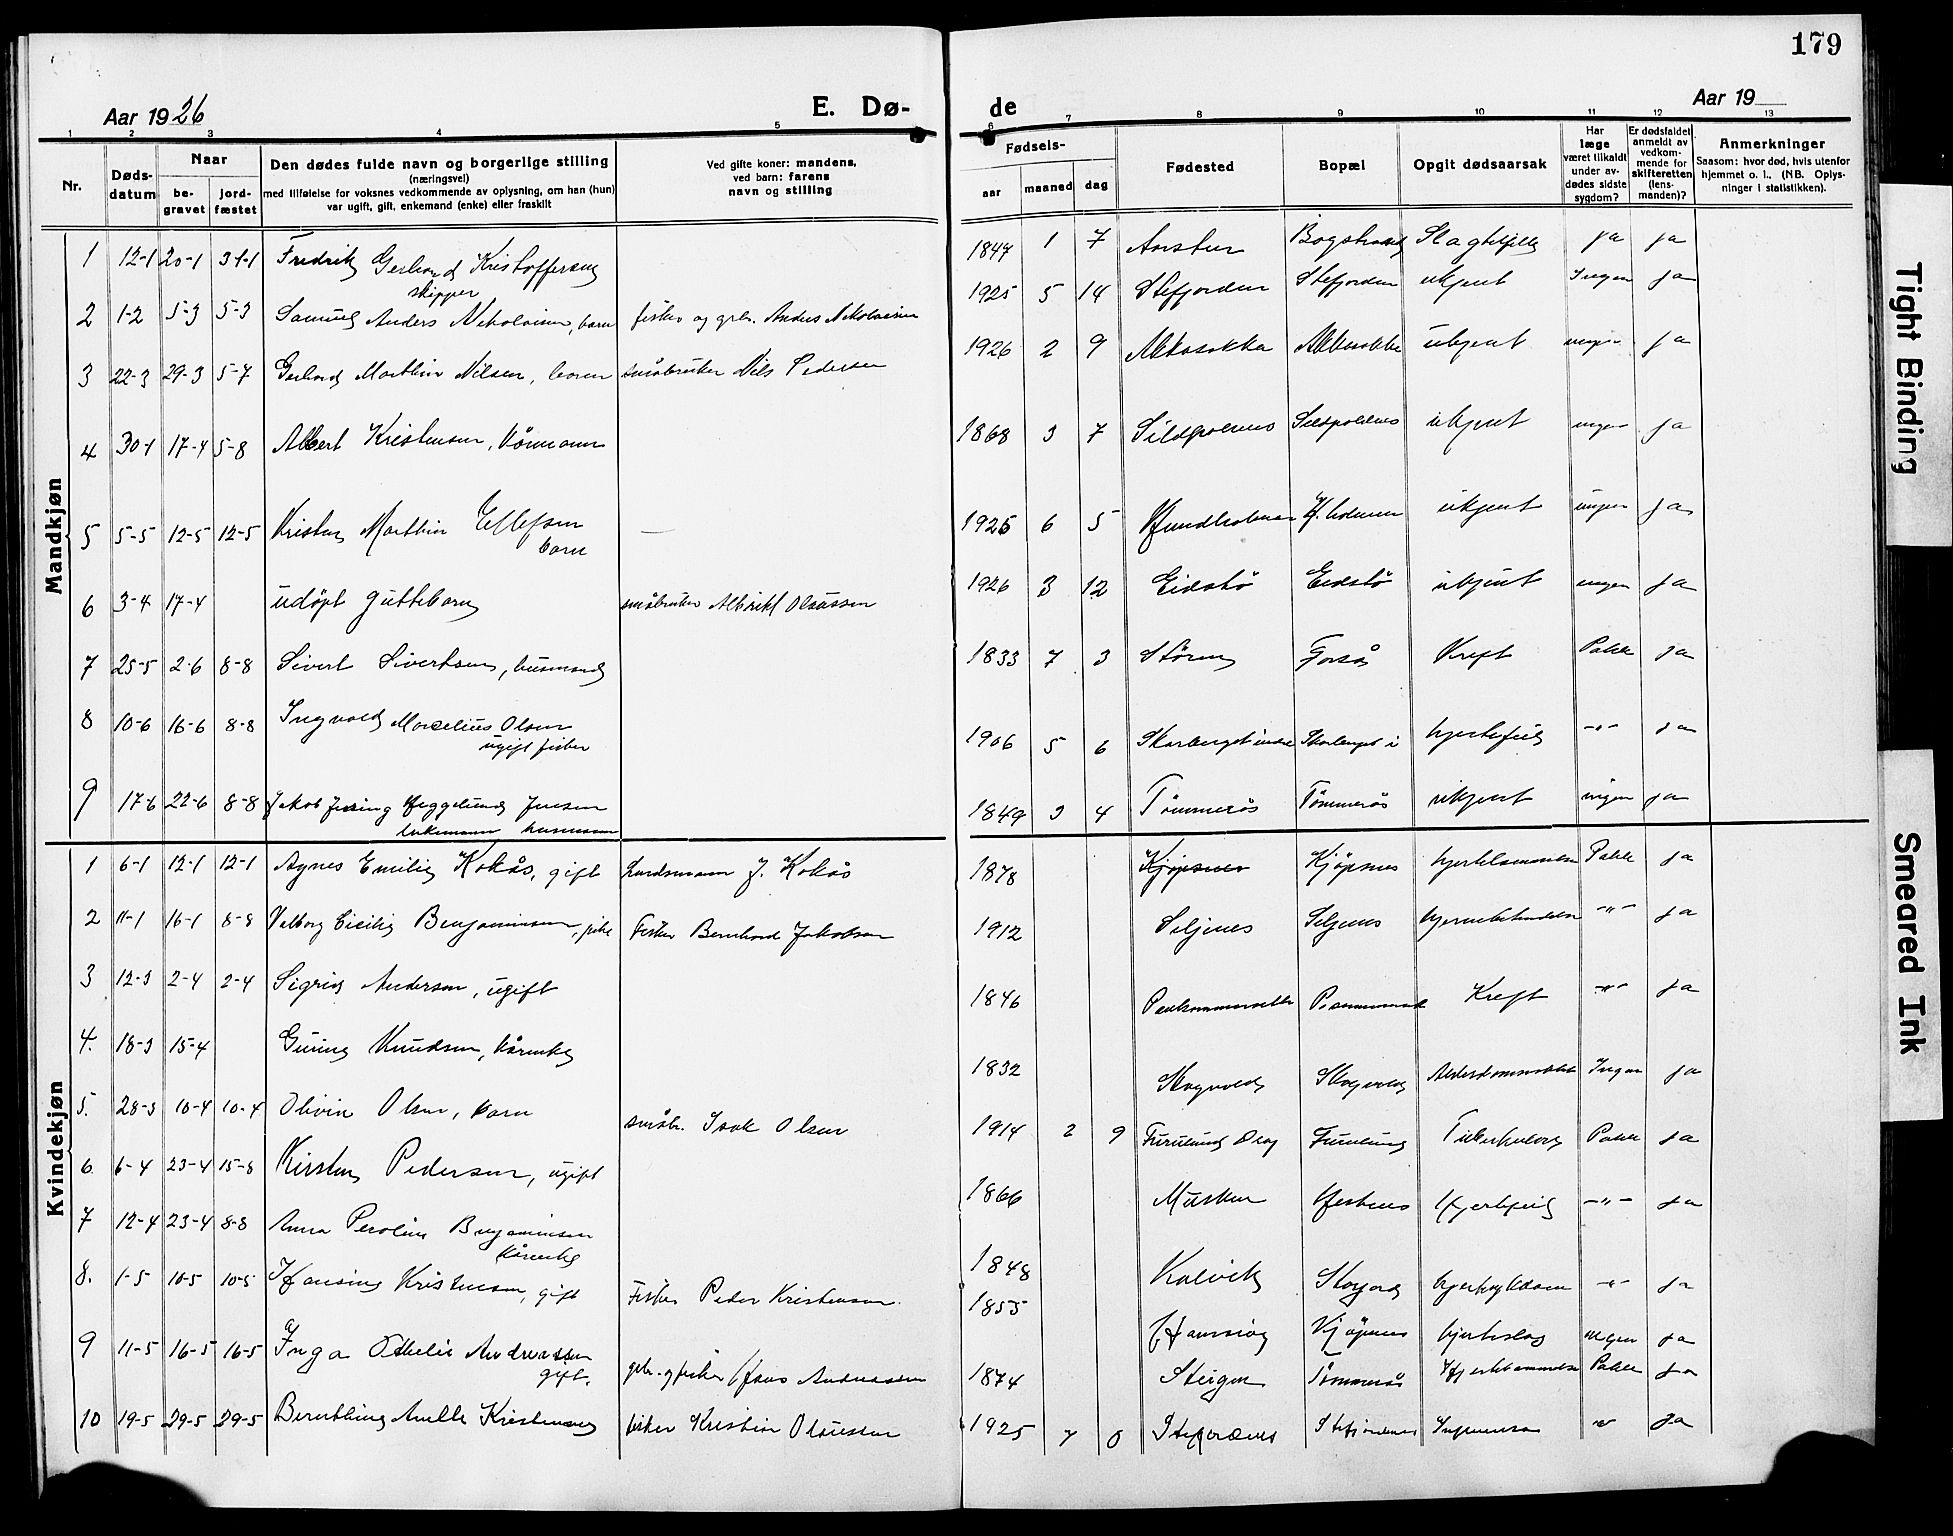 179
Aar 1926
E. Dø-
de
Aar 19
1 2 3 4 5 6 7 8 9 10 11 12 13
Nr.
Døds-
datum
Naar
be-
gravet
jord-
fæstet
Den dødes fulde navn og borgerlige stilling
(næringsvei)
med tilføielse for voksnes vedkommende av oplysning, om han (hun)
var ugift, gift, enkemand (enke) eller fraskilt
Ved gifte koner: mandens,
ved barn: farens
navn og stilling
Fødsels-
aar
maaned
dag
Fødested
Bopæl
Opgit dødsaarsak
Har
læge
været tilkaldt
under av-
dødes sidste
sygdom?
Er dødsfaldet
anmeldt av
vedkom-
mende for
skifteretten
(lens-
manden)?
Anmerkninger
Saasom: hvor død, hvis utenfor
hjemmet o. l., (NB. Oplys-
ninger i statistikken).
Mandkjøn
1 12-1 20-1 31-1 Fredrik Gerhard Kristoffersen skipper 1847 1 7 ja ja
2 1-2 5-3 5-3 Samuel Anders Nikolaisen, barn fisker og gbr. Anders Nikolaisen 1925 5 14 Stefjorden Stefjorden ukjent Ingen ja
3 22-3 29-3 5-7 Gerhard Marthin Nilsen, barn småbruker Nils Pedersen 1926 2 9 ukjent ingen ja
4 30-1 17-4 5-8 Albert Kristensen, kårmann 1868 3 7 Sildpolnes Sildpolnes ukjent ingen ja
5 5-5 12-5 12-5 Kristen Marthin Ellefsen barn — 1925 6 5 ukjent ingen ja
6 3-4 17-4 udöpt guttebarn småbruker Albrikt Olaussen 1926 3 12 Eidstö Eidstö ukjent ingen ja
7 25-5 2-6 8-8 Sivert Sivertsen, husmand 1833 7 3 Stören Forså Kreft Palle ja
8 10-6 16-6 8-8 Ingvald Marcelius Olsen ugift fisker 1906 5 6 Skarberget indre Skarberget i hjertefeil -"- ja
9 17-6 22-6 8-8 Jakob Jessing Heggelund Jensen enkemann husmann 1849 3 4 Tömmerås Tömmerås ukjent ingen ja
Kvindekjøn
1 6-1 12-1 12-1 Agnes Emilie Kokås, gift Lendsmann J. Kokås 1878 Kjöpsnes Kjöpsnes Palle ja
2 11-1 16-1 8-8 Valborg Cicilie Benjaminsen, pike Fisker Bernhard Jakobsen 1912 Seljenes Seljenes -"- ja
3 12-3 2-4 2-4 Sigrid Andersen, ugift 1846 Kreft -"- ja
4. 18-3 15-4 Guring Knudsen, kårenke 1832 Skogvold Skogvold Ingen ja
5. 28-3 10-4 10-4 Olivin Olsen, barn småbr. Isak Olsen 1914 2 9 Furulund Drag Furulund Tuberkulose Palle ja
6 6-4 23-4 15-8 Kirsten Pedersen, ugift 1866 Musken Hestnes Hjertefeil -"- ja
7 12-4 23-4 8-8 Anna Peroline Benjaminsen kårenke 1848 Kalvik -"- ja
8. 1-5 10-5 10-5 Hansine Kristensen, gift Fisker Peder Kristensen. 1855 Kjöpsnes hjerteslag ingen ja
9 11-5 16-5 16-5 Inga Othelie Andreassen gift. gbr. og fisker Hans Andreassen 1874 Steigen Tömmerås Palle ja
10 19-5 29-5 29-5 Berntine Amelle Kristensen fisker Kristian Olaussen 1925 7 0 Stefjordnes Stefjordnes " ja
Tight Binding
Smeared Ink